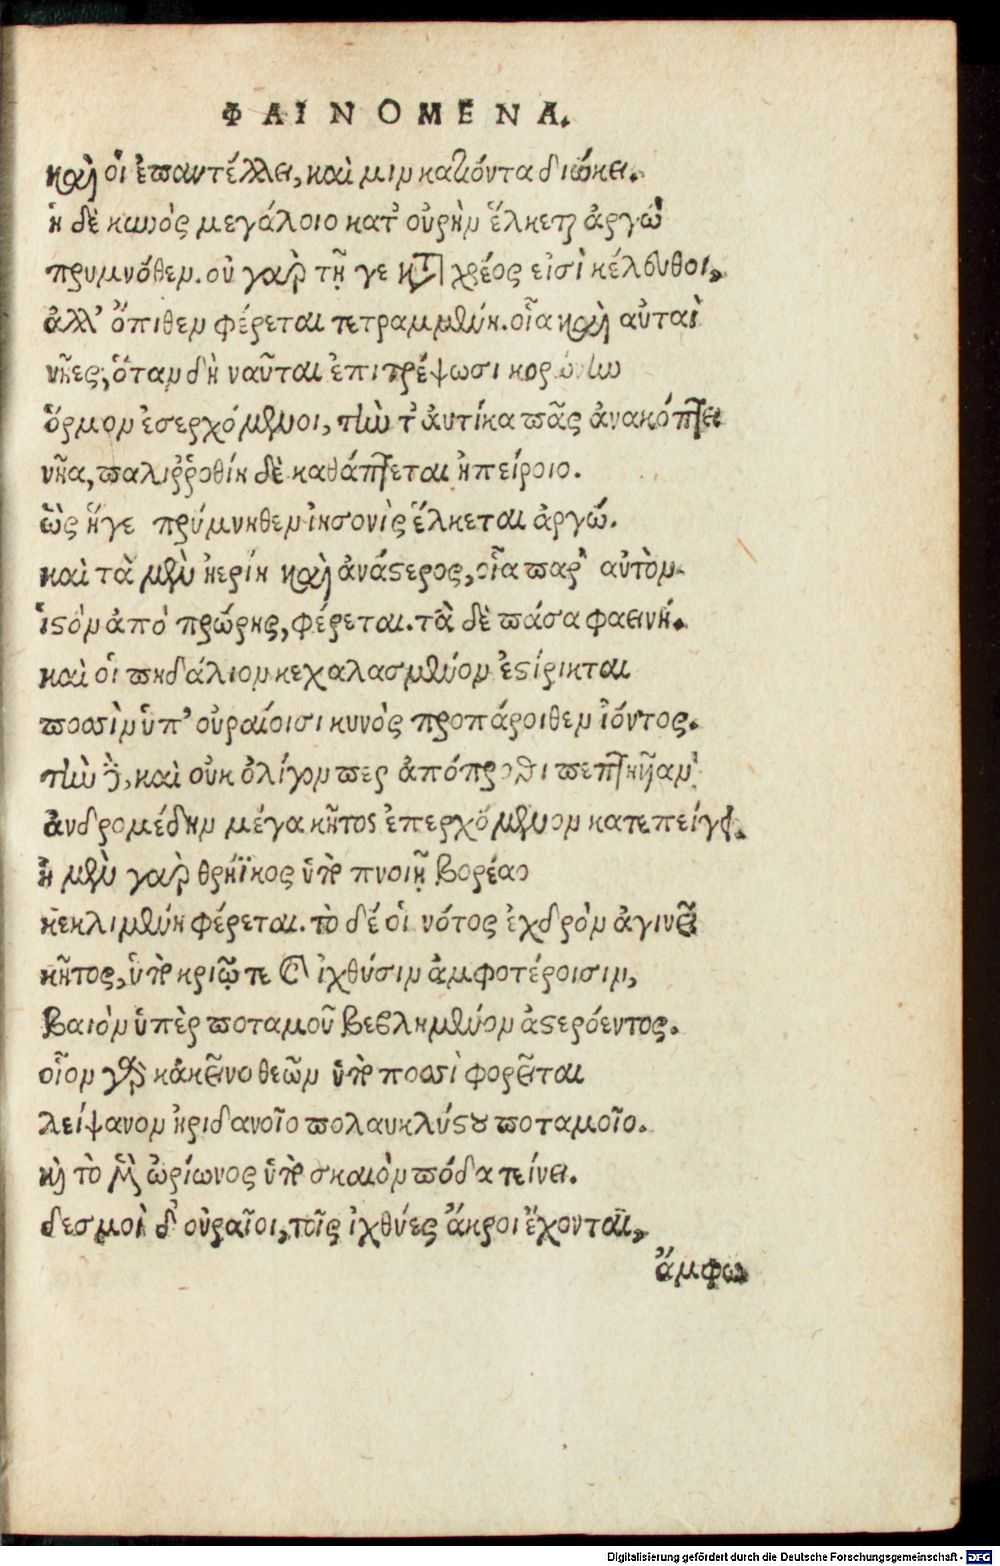 ΦΑΙΝΟΜΕΝΑ.
καὶ οἱ ἐπαντέλλει, καὶ μιν κατιόντα διώκει.
ἡ δὲ κυνὸς μεγάλοιο κατ' οὐρὴν ἕλκεται ἀργὼ
πρυμνόθεν. οὐ γὰρ τῇ γε κατὰ χρέος εἰσὶ κέλευθοι,
ἀλλ' ὄπιθεν φέρεται τετραμμένη. οἷα καὶ αὐταὶ
νῆες, ὅταν δὴ ναῦται ἐπιτρέψωσι κορώνην
ὅρμον ἐσερχόμενοι, τὴν τ' ἀυτίκα πᾶς ἀνακόπτει
νῆα, παλιῤῥοθίη δὲ καθάπτεται ἠπείροιο.
ὣς ἥγε πρύμνηθεν ἰησονὶς ἕλκεται ἀργώ.
καὶ τὰ μὲν ἠερίη καὶ ἀνάστερος, οἷα παρ' αὐτὸν
ἱστὸν ἀπὸ πρώρης, φέρεται. τὰ δὲ πάσα φαεινή.
καὶ οἱ πηδάλιον κεχαλασμένον ἐστήρικται
ποσσὶν ὑπ' οὐραίοισι κυνὸς προπάροιθεν ἰόντος.
τὴν δὲ, καὶ οὐκ ὀλίγον περ ἀπόπροθι πεπτηῆαν
ἀνδρομέδην μέγα κῆτος ἐπερχόμενον κατεπείγει.
ἡ μὲν γὰρ θρήϊκος ὑπὸ πνοιῇ βορέαο
κεκλιμένη φέρεται. τὸ δέ οἱ νότος ἐχδρὸν ἀγινεῖ
κῆτος, ὑπὸ κριῷ τε καὶ ἰχθύσιν ἀμφοτέροισιν,
βαιὸν ὑπὲρ ποταμοῦ βεβλημένον ἀστερόεντος.
οἷον γὰρ κἀκεῖνο θεῶν ὑπὸ ποσσὶ φορεῖται
λείψανον ἠριδανοῖο πολυκλύστου ποταμοῖο.
καὶ τὸ μὲν ὠρίωνος ὑπὸ σκαιὸν πόδα τείνει.
δεσμοὶ δ' οὐραῖοι, τοῖς ἰχθύες ἄκροι ἔχονται,
ἄμφω
Digitalisierung gefördert durch die Deutsche Forschungsgemeinschaft - DFG